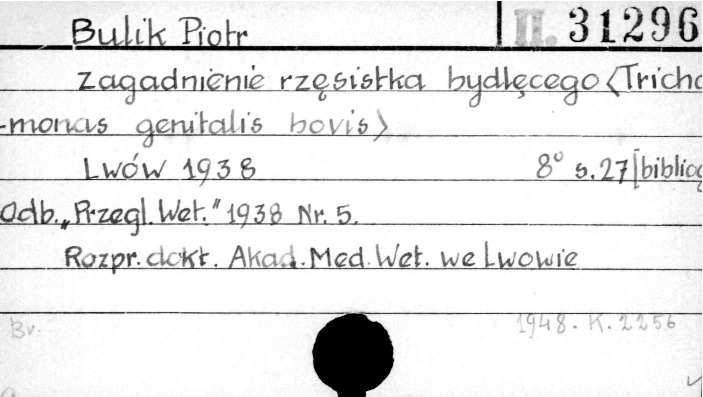 Bulik Piotr II. 31296
Zagadnienie rzęsistka bydlęcego <Tricho
-monas genitalis bovis>
Lwów 1938 8° s. 27 [bibliog
Odb. „Przegl. Wet." 1938 Nr. 5.
Rozpr. dokt. Akad. Med. Wet. we Lwowie
Br. 1948. K. 2256